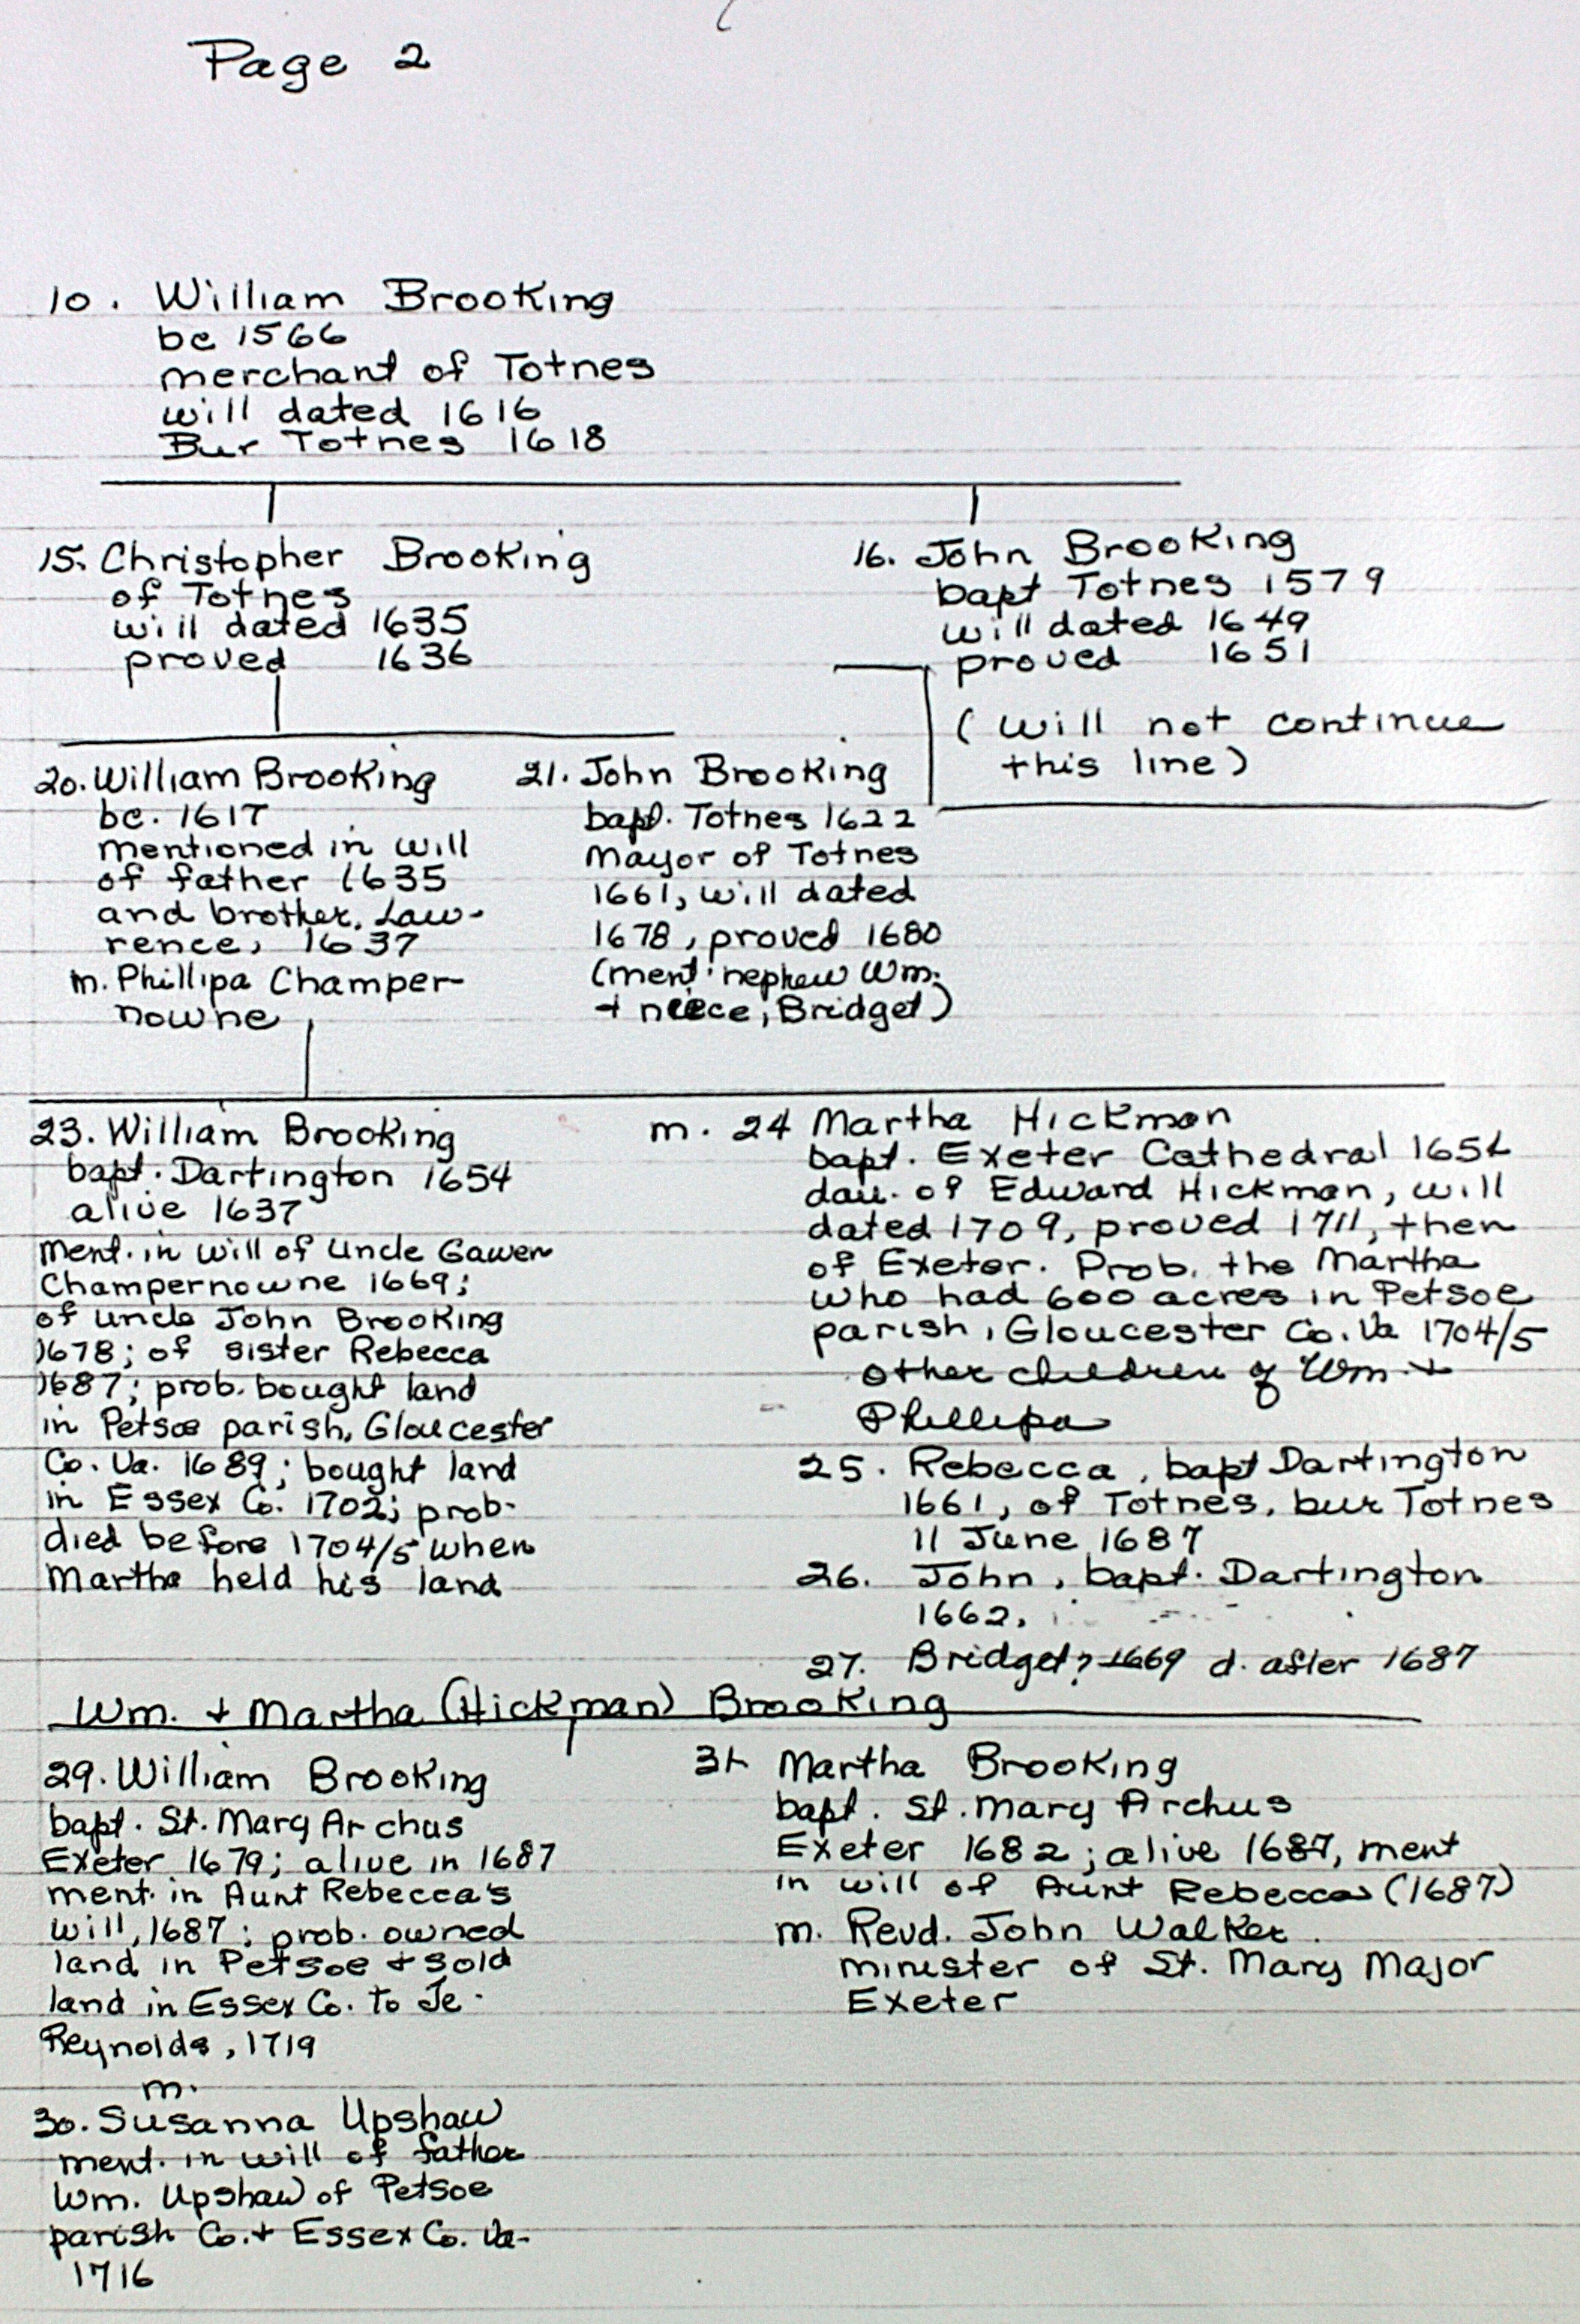 Page 2
10. William Brooking
bc 1566
merchant of Totnes
will dated 1616
Bur Totnes 1618
15. Christopher Brooking
of Totnes
will dated 1635
proved 1636
16. John Brooking
bapt Totnes 1579
will dated 1649
proved 1651
(will not continue
this line)
20. William Brooking
bc. 1617
mentioned in will
of father 1635
and brother, Law-
rence, 1637
m. Phillipa Champer-
nowne
21. John Brooking
bapt. Totnes 1622
Mayor of Totnes
1661, will dated
1678, proved 1680
(ment. nephew Wm.
+ niece, Bridget)
23. William Brooking
bapt. Dartington 1654
alive 1637
ment. in will of Uncle Gawen
Champernowne 1669;
of uncle John Brooking
1678; of sister Rebecca
1687; prob. bought land
in Petsoe parish, Gloucester
Co. Va. 1689; bought land
in Essex Co. 1702; prob.
died before 1704/5 when
Martha held his land
m. 24 Martha Hickman
bapt. Exeter Cathedral
dau. of Edward Hickman, will
dated 1709, proved 1711, then
of Exeter. Prob. the Martha
who had 600 acres in Petsoe
parish, Gloucester Co. Va 1704/5
other children of Wm. +
Phillipa
25. Rebecca, bapt Dartington
1661, of Totnes, bur Totnes
11 June 1687
26. John, bapt. Dartington
1662,
27. Bridget? 1669 d. after 1687
Wm. + Martha (Hickman) Brooking
29. William Brooking
bapt. St. Mary Archus
Exeter 1679; alive in 1687
ment. in Aunt Rebecca's
will, 1687; prob. owned
land in Petsoe + sold
land in Essex Co. to Je.
Reynolds, 1719
m.
30. Susanna Upshaw
ment. in will of father
Wm. Upshaw of Petsoe
parish Co. + Essex Co. Va.
1716
31. Martha Brooking
bapt. St. Mary Archus
Exeter 1682; alive 1687, ment
in will of Aunt Rebecca (1687)
m. Revd. John Walker
minister of St. Mary Major
Exeter